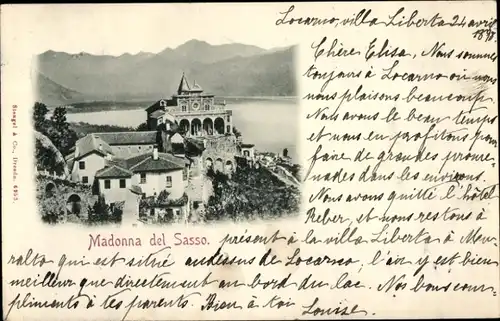 Locarno, villa Liberta 24 avril
1898
Chère Elisa, Nous sommes
toujours à Locarno où nous
nous plaisons beaucoup.
Nous avons le beau temps
et nous en profitons pour
faire de grandes prome-
nades dans les environs.
Nous avons quitté l'hôtel
Reber, et nous restons à
présent à la villa Liberta à Mu-
ralto qui est situé audessus de Locarno, l'air y est bien
meilleur que directement au bord du lac. Nos bons com-
pliments à tes parents. Bien à toi Louise
Madonna del Sasso.
Stengel & Co., Dresda. 4953.